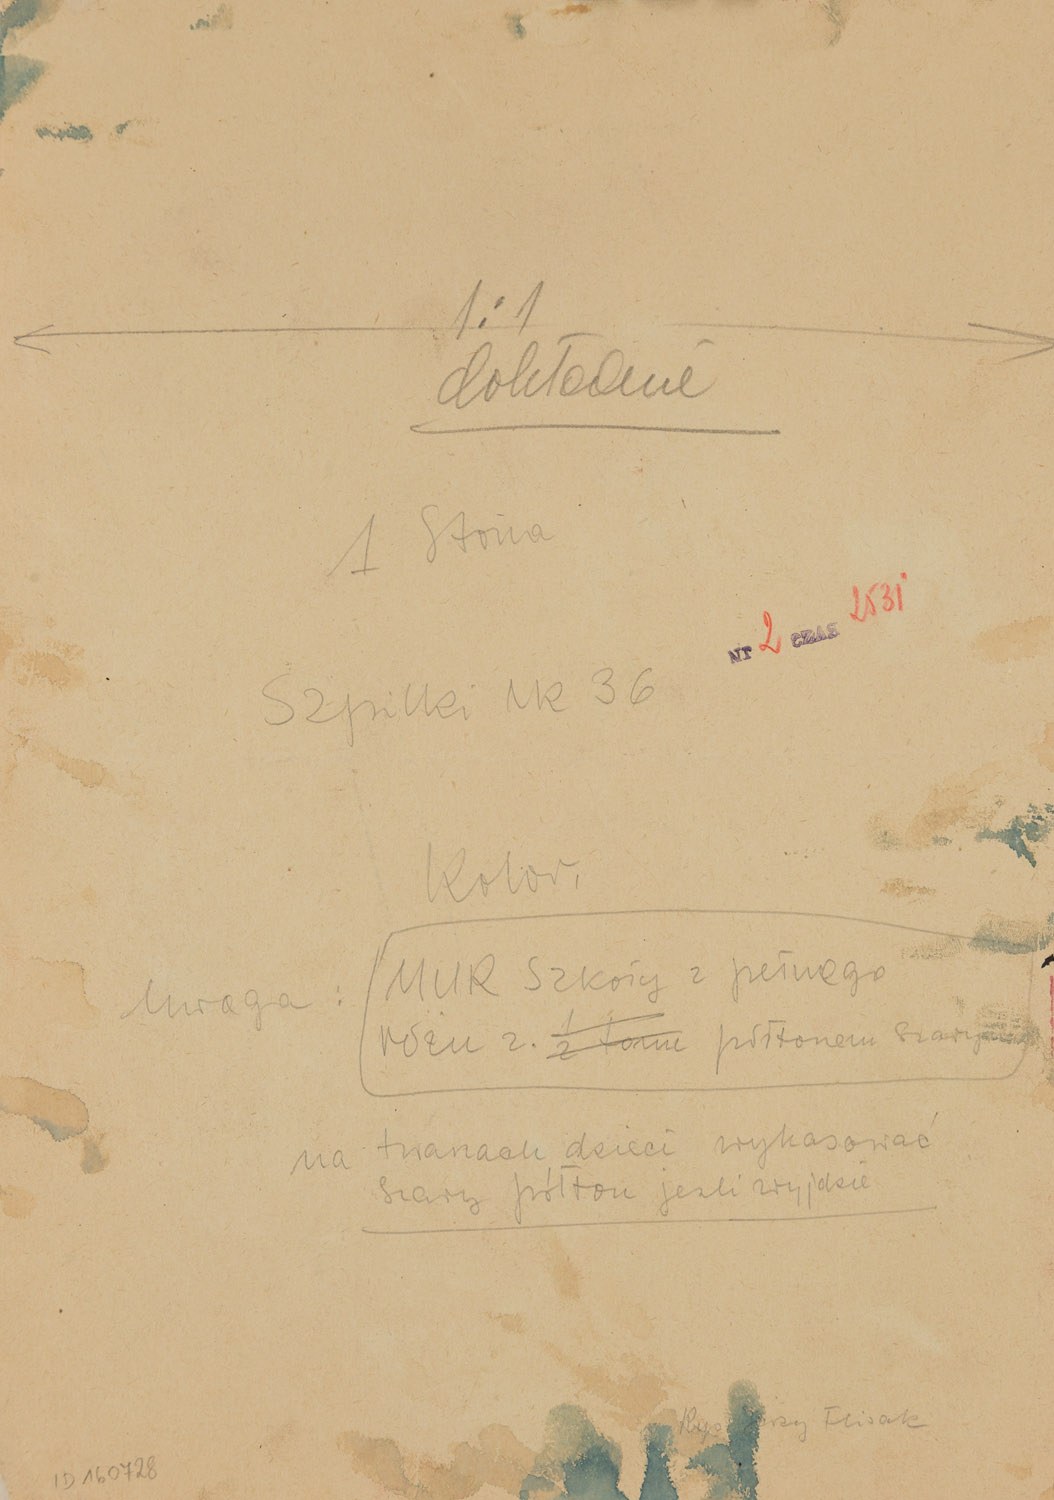 1:1
dokładnie
1 Strona
NR 2 CZAS 2531
Szpilki NR 36
Kolor,
Uwaga : MUR Szkoły z pełnego
różu z. 1/2 tonu półtonem szarym
na twarzach dzieci wykasować
szary półton jeśli wyjdzie
Rys Jerzy Flisak
ID 160728